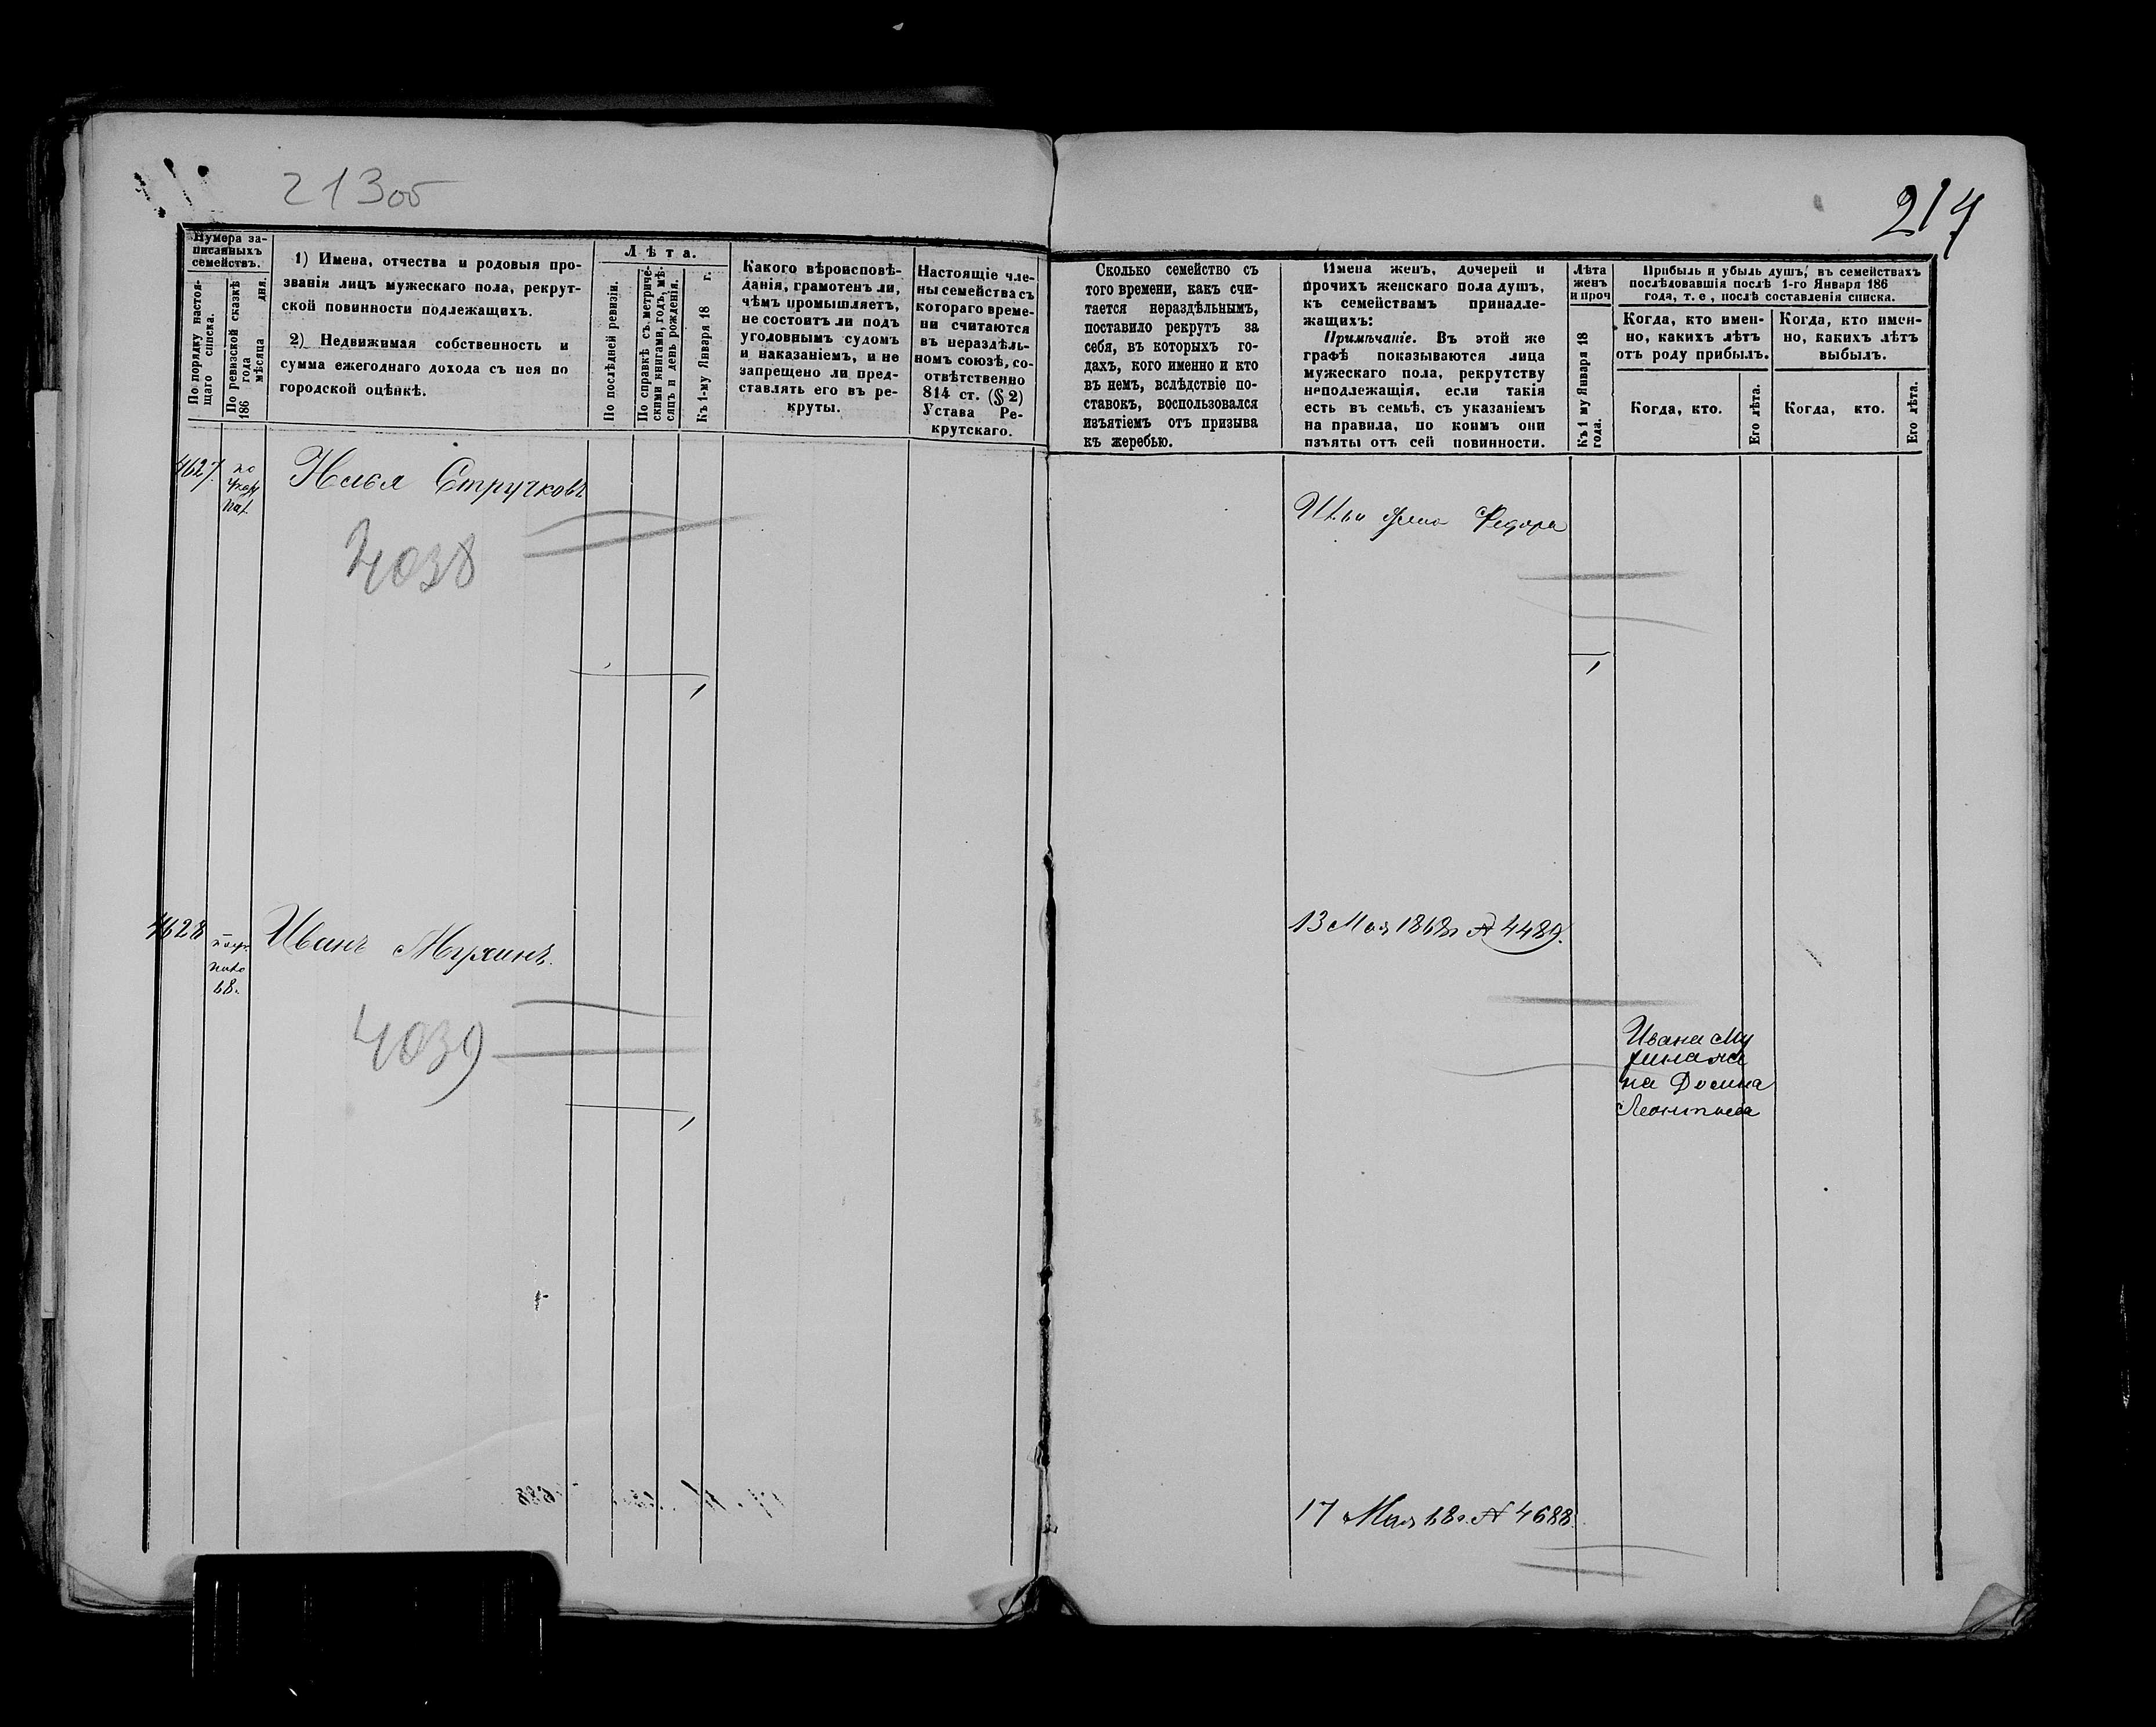 213об
214
Нумера за-
писанныхъ
семействъ.
По порядку настоя-
щаго списка.
По ревизской сказкѣ
186 года
мѣсяца дня.
1) Имена, отчества и родовыя про-
званія лицъ мужескаго пола, рекрут-
ской повинности подлежащихъ.
2) Недвижимая собственность и
сумма ежегоднаго дохода съ нея по
городской оцѣнкѣ.
Лѣта.
По послѣдней ревизіи.
По справкѣ съ метриче-
скими книгами, годъ, мѣ-
сяцъ и день рожденія.
Къ 1-му Января 18 г.
Какого вѣроисповѣ-
данія, грамотенъ ли,
чѣмъ промышляетъ,
не состоитъ ли подъ
уголовнымъ судомъ
и наказаніемъ, и не
запрещено ли пред-
ставлять его въ ре-
круты.
Настоящіе чле-
ны семейства съ
котораго време-
ни считаются
въ нераздѣль-
номъ союзѣ, со-
отвѣтственно
814 ст. (§ 2)
Устава Ре-
крутскаго.
Сколько семейство съ
того времени, какъ счи-
тается нераздѣльнымъ,
поставило рекрутъ за
себя, въ которыхъ го-
дахъ, кого именно и кто
въ немъ, вслѣдствіе по-
ставокъ, воспользовался
изъятіемъ отъ призыва
къ жеребью.
Имена женъ, дочерей и
прочихъ женскаго пола душъ,
къ семействамъ принадле-
жащихъ:
Примѣчаніе. Въ этой же
графѣ показываются лица
мужескаго пола, рекрутству
неподлежащія, если такія
есть въ семьѣ, съ указаніемъ
на правила, по коимъ они
изъяты отъ сей повинности.
Лѣта
женъ
и проч
Къ 1 му Января 18
года.
Прибыль и убыль душъ, въ семействахъ
послѣдовавшія послѣ 1-го Января 186
года, т. е, послѣ составленія списка.
Когда, кто имен-
но, какихъ лѣтъ
отъ роду прибылъ.
Когда, кто.
Его лѣта.
Когда, кто имен-
но, какихъ лѣтъ
выбылъ.
Когда, кто.
Его лѣта.
4627.
по
Стручковъ
Федора
4038
1
1
4628
Иванъ Мухинъ.
68.
13 Мая 1868г № 4489.
4039
1
Ивана Му
хина же
на Домна
Леонтьева
17 Мая 68г. № 4688.